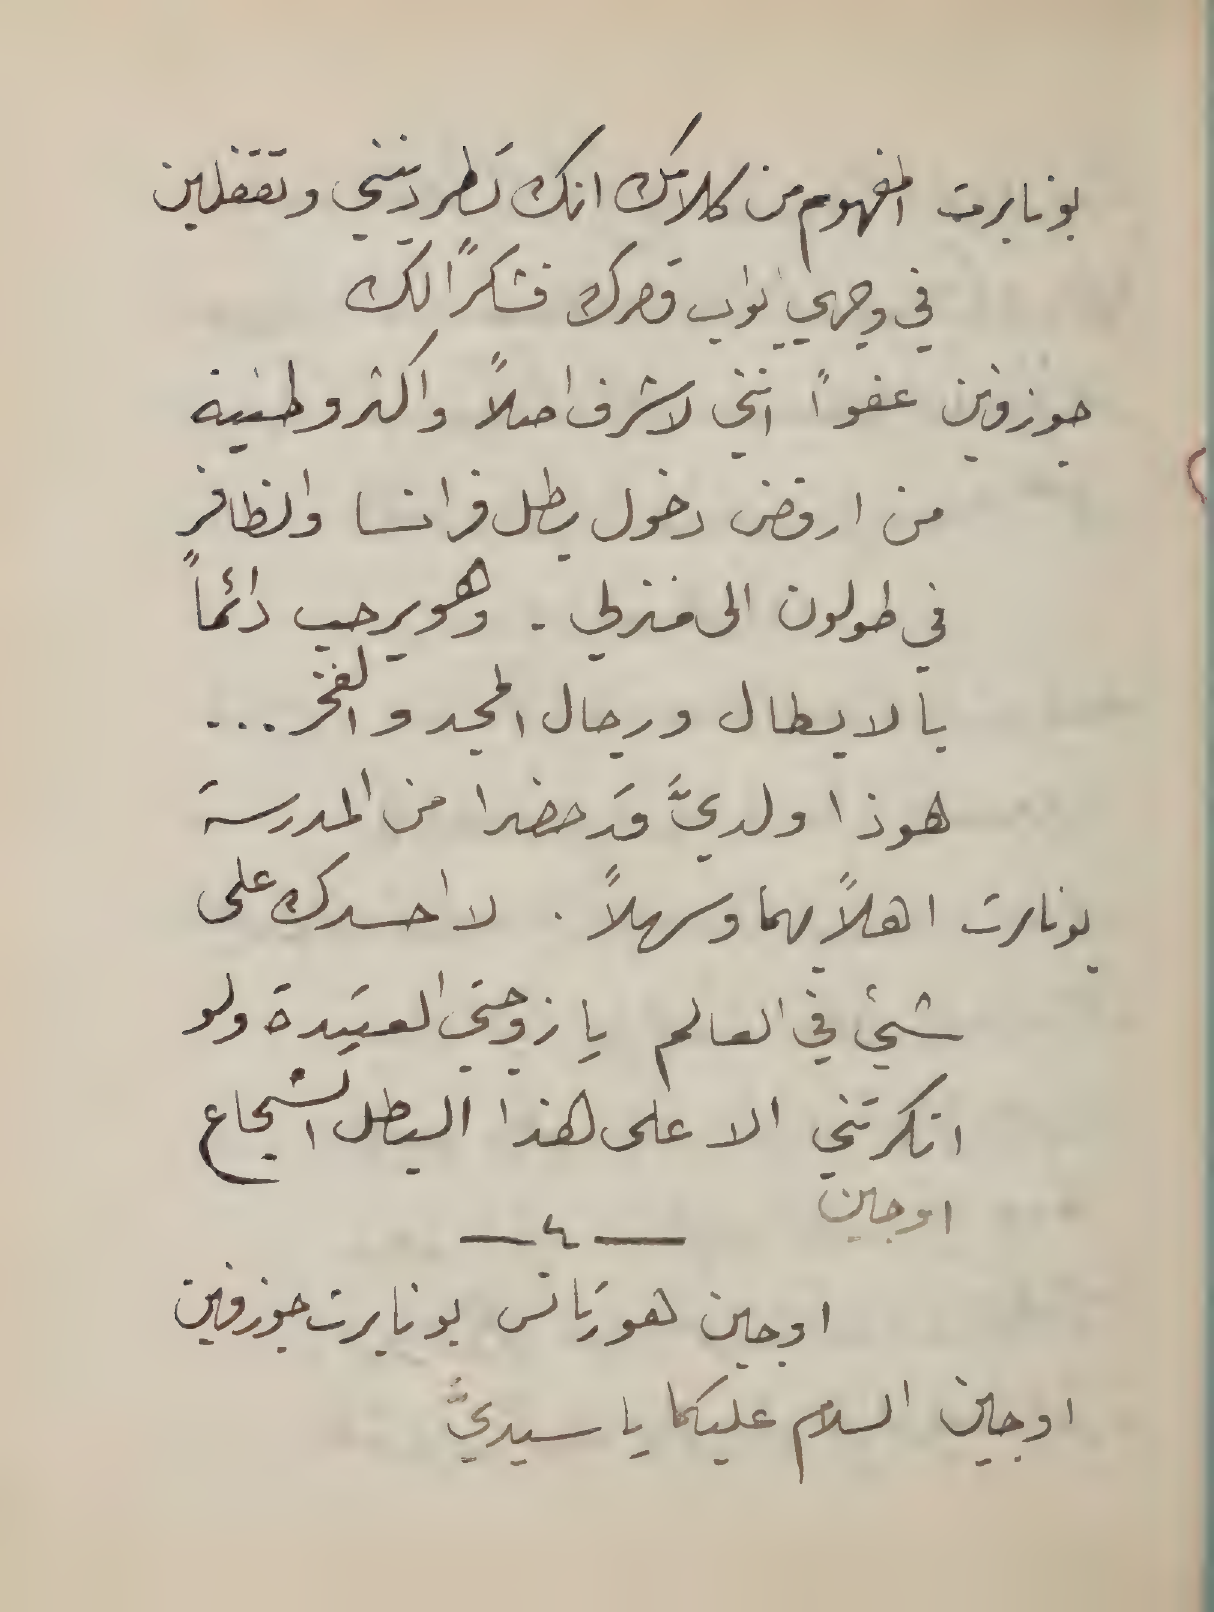 بونابرت المفهوم من كلامك انك تطردينني وتقفلين
في وجهي ابواب قصرك فشكراً لك
جوزفين عفواً انني لاشرف اصلاً واكثر وطنية
من ارفض دخول بطل فرانسا والظافر
في طولون الى منزلي . وهو يرحب دائماً
بالابطال ورجال المجد والفخر ...
هوذا ولديَّ قد حضرا من المدرسة
بونابرت اهلاً بهما وسهلاً . لا احسدك على
شيء في العالم يا زوجتي العتيدة ولو
انكرتني الا على هذا البطل الشجاع
اوجين
— ٤ —
اوجين هورتانس بونابرت جوزفين
اوجين السلام عليكما يا سيديَّ